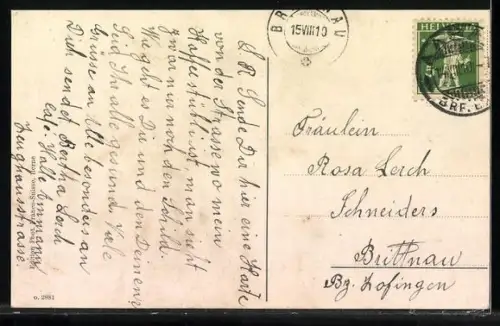 BRITTNAU
15.VIII.10
HELVETIA
BRF. E
L. R. Sende Dir hier eine Karte
von der Strasse wo mein
Kaffeestübli ist, man sieht
zwar nur noch den Schild.
Wie geht es Dir und den Deinen,
Seid Ihr alle gesund. Viele
Grüsse an Alle besonders an
Dich sendet Bertha Lerch
Cafe. Halle Emmann
Zeughausstrasse.
Fräulein
Rosa Lerch
Schneiders
Brittnau
Bz. Zofingen